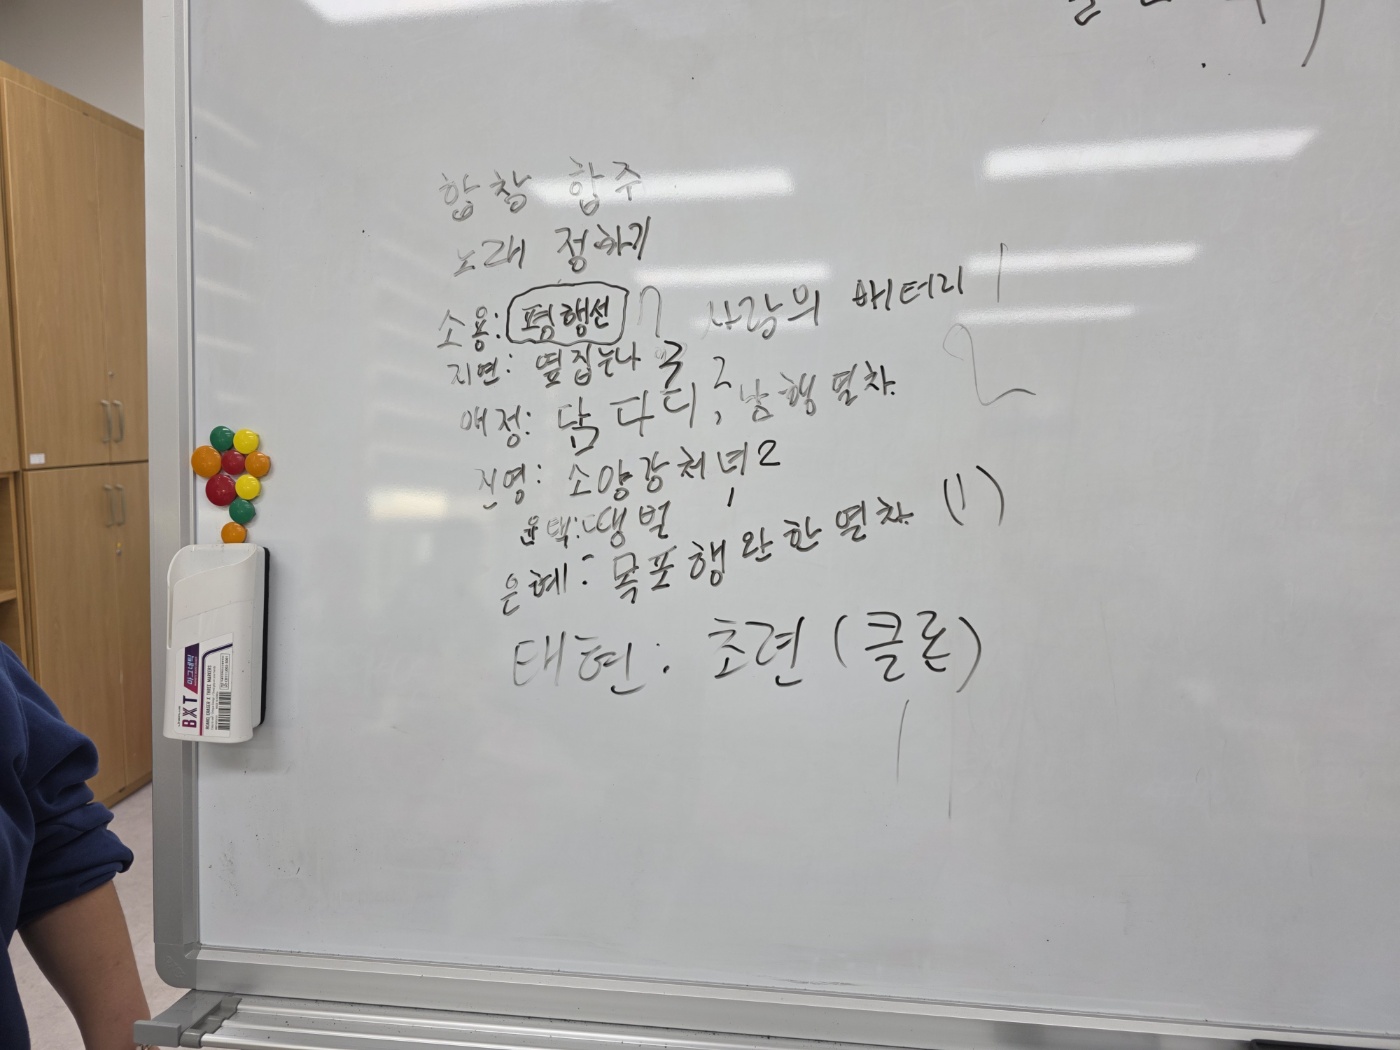 합창 합주
노래 정하기
소용: 평행선 7 사랑의 배터리 1
지연: 옆집누나 2
애정: 담다디 2, 남행열차 2
진영: 소양강처녀 2
윤택: 땡벌 1
은혜: 목포행 완한열차 (1)
태현: 초련 (클론)
1
BXT